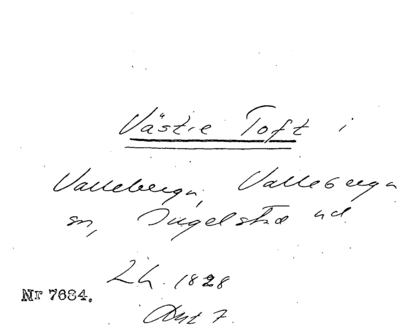 Västre Toft i
Valleberga, Valleberga
sn, Ingelstad hd.
Lh. 1828
Akt 7.
Nr 7684.